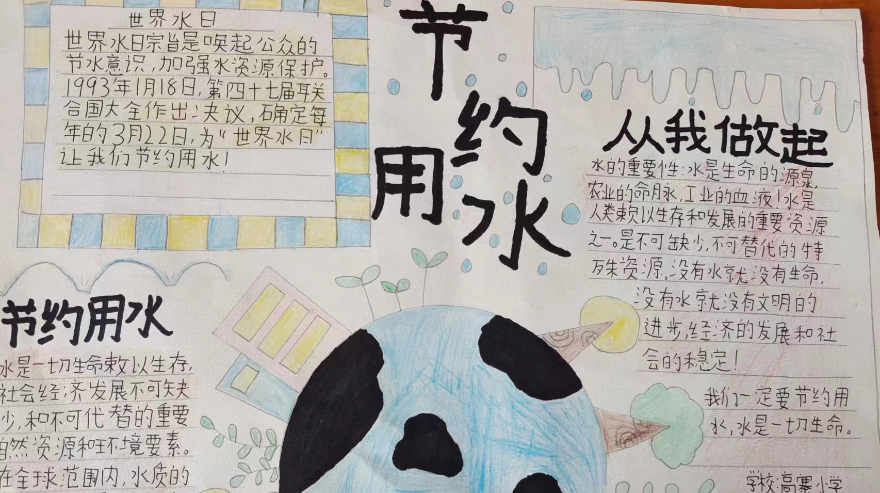 世界水日
世界水日宗旨是唤起公众的
节水意识,加强水资源保护。
1993年1月18日,第四十七届联
合国大会作出决议,确定每
年的3月22日,为“世界水日”
让我们节约用水!
节约
用水
从我做起
水的重要性:水是生命的源泉,
农业的命脉,工业的血液!水是
人类赖以生存和发展的重要资源
之一。是不可缺少,不可替代的特
殊资源,没有水就没有生命,
没有水就没有文明的
进步,经济的发展和社
会的稳定!
我们一定要节约用
水,水是一切生命。
学校:高寨小学
节约用水
水是一切生命赖以生存,
社会经济发展不可缺
少,和不可代替的重要
自然资源和环境要素。
在全球范围内,水质的